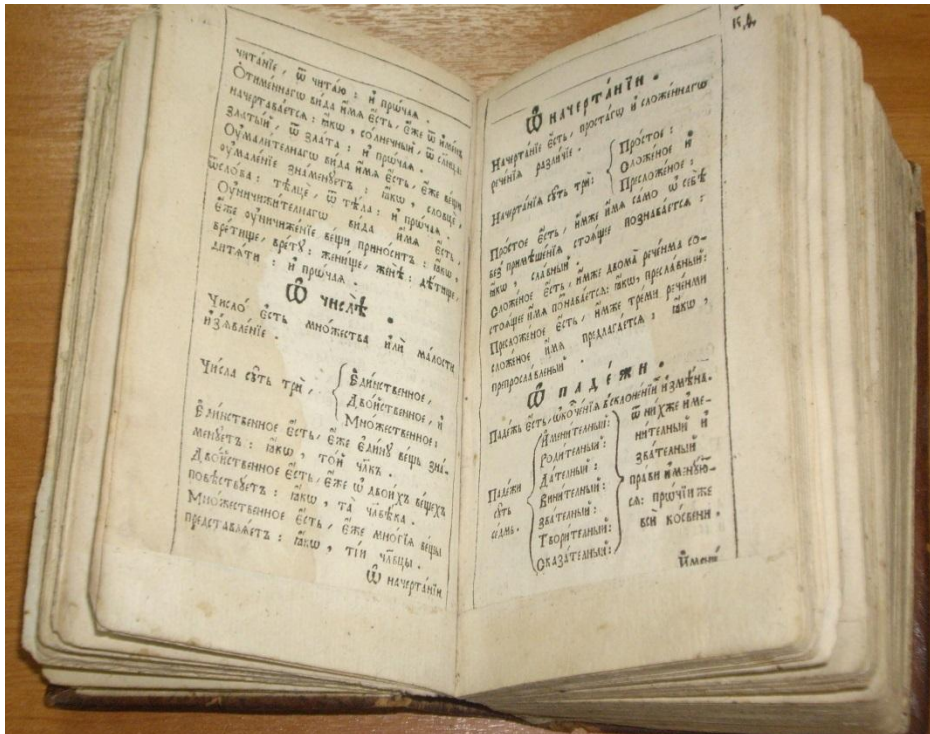 чита́нїе, ѿ чита́ю: и҆ прѡ́чаѧ.
Отиме́ннагѡ ви́да и҆́мѧ є҆́сть, є҆́же ѿ и҆мє́нъ
начертава́етсѧ: ꙗ҆́кѡ, со́лнечный, ѿ сл҃нца:
зла́тый, ѿ зла́та: и҆ прѡ́чаѧ.
Оумали́телнагѡ ви́да и҆́мѧ є҆́сть, є҆́же ве́щи
оумале́нїе знамену́етъ: ꙗ҆́кѡ, словцѐ,
ѿ сло́ва: тѣлцѐ, ѿ тѣ́ла: и҆ прѡ́чаѧ.
Оуничижи́телнагѡ ви́да и҆́мѧ є҆́сть,
є҆́же оуничиже́нїе ве́щи прино́ситъ: ꙗ҆́кѡ,
вре́тище, врету̀: же́нище, женѣ̀: дѣ́тище,
дитѧ́ти: и҆ прѡ́чаѧ.
Ѽ числѣ̀.
Число̀ є҆́сть мно́жества и҆лѝ ма́лости
и҆з̾ѧвле́нїе.
Чи́сла сꙋ́ть трѝ, Є҆ди́нственное,
Дво́йственное, и҆
Мно́жественное:
Є҆ди́нственное є҆́сть, є҆́же є҆ди́нꙋ ве́щь зна-
мену́етъ: ꙗ҆́кѡ, то́й чл҃къ.
Дво́йственное є҆́сть, є҆́же ѡ҆ двои́хъ ве́щехъ
повѣ́ствꙋетъ: ꙗ҆́кѡ, та̀ чл҃вѣка.
Мно́жественное є҆́сть, є҆́же мнѡ́гїѧ ве́щы
представлѧ́етъ: ꙗ҆́кѡ, ті́и чл҃вцы.
Ѽ начерта́нїи
Ѽ начерта́нїи.
Начерта́нїе є҆́сть, проста́гѡ и҆ сложе́ннагѡ
рече́нїѧ разли́чїе.
Начерта́нїѧ сꙋ́ть трѝ: Просто́е:
Сложе́ное и҆
Пресложе́ное:
Просто́е є҆́сть, и҆́мже и҆́мѧ само̀ ѡ҆ себѣ̀
без̾ примѣше́нїѧ стоѧ́щее познава́етсѧ:
ꙗ҆́кѡ, сла́вный.
Сложе́ное є҆́сть, и҆́мже двома̀ рече́нма со-
стоѧ́щее и҆́мѧ познава́етсѧ: ꙗ҆́кѡ, пресла́вный:
Пресложе́ное є҆́сть, и҆́мже тремѝ рече́нми
сложе́ное и҆́мѧ предлага́етсѧ: ꙗ҆́кѡ,
препросла́вленый.
Ѽ паде́жи.
Паде́жь є҆́сть, ѡ҆коча́нїѧ в̾склоне́нїи и҆змѣ́на.
Паде́жи
сꙋ́ть
се́дмь.
И҆мени́телный:
Роди́телный:
Да́телный:
Вини́телный:
Зва́телный:
Твори́телный:
Сказа́телный:
ѿ ни́хже и҆ме-
ни́телный и҆
зва́телный
пра́ви и҆менꙋ́ю-
сѧ: прѡ́чїи же
всѝ ко́свени.
И҆мени́